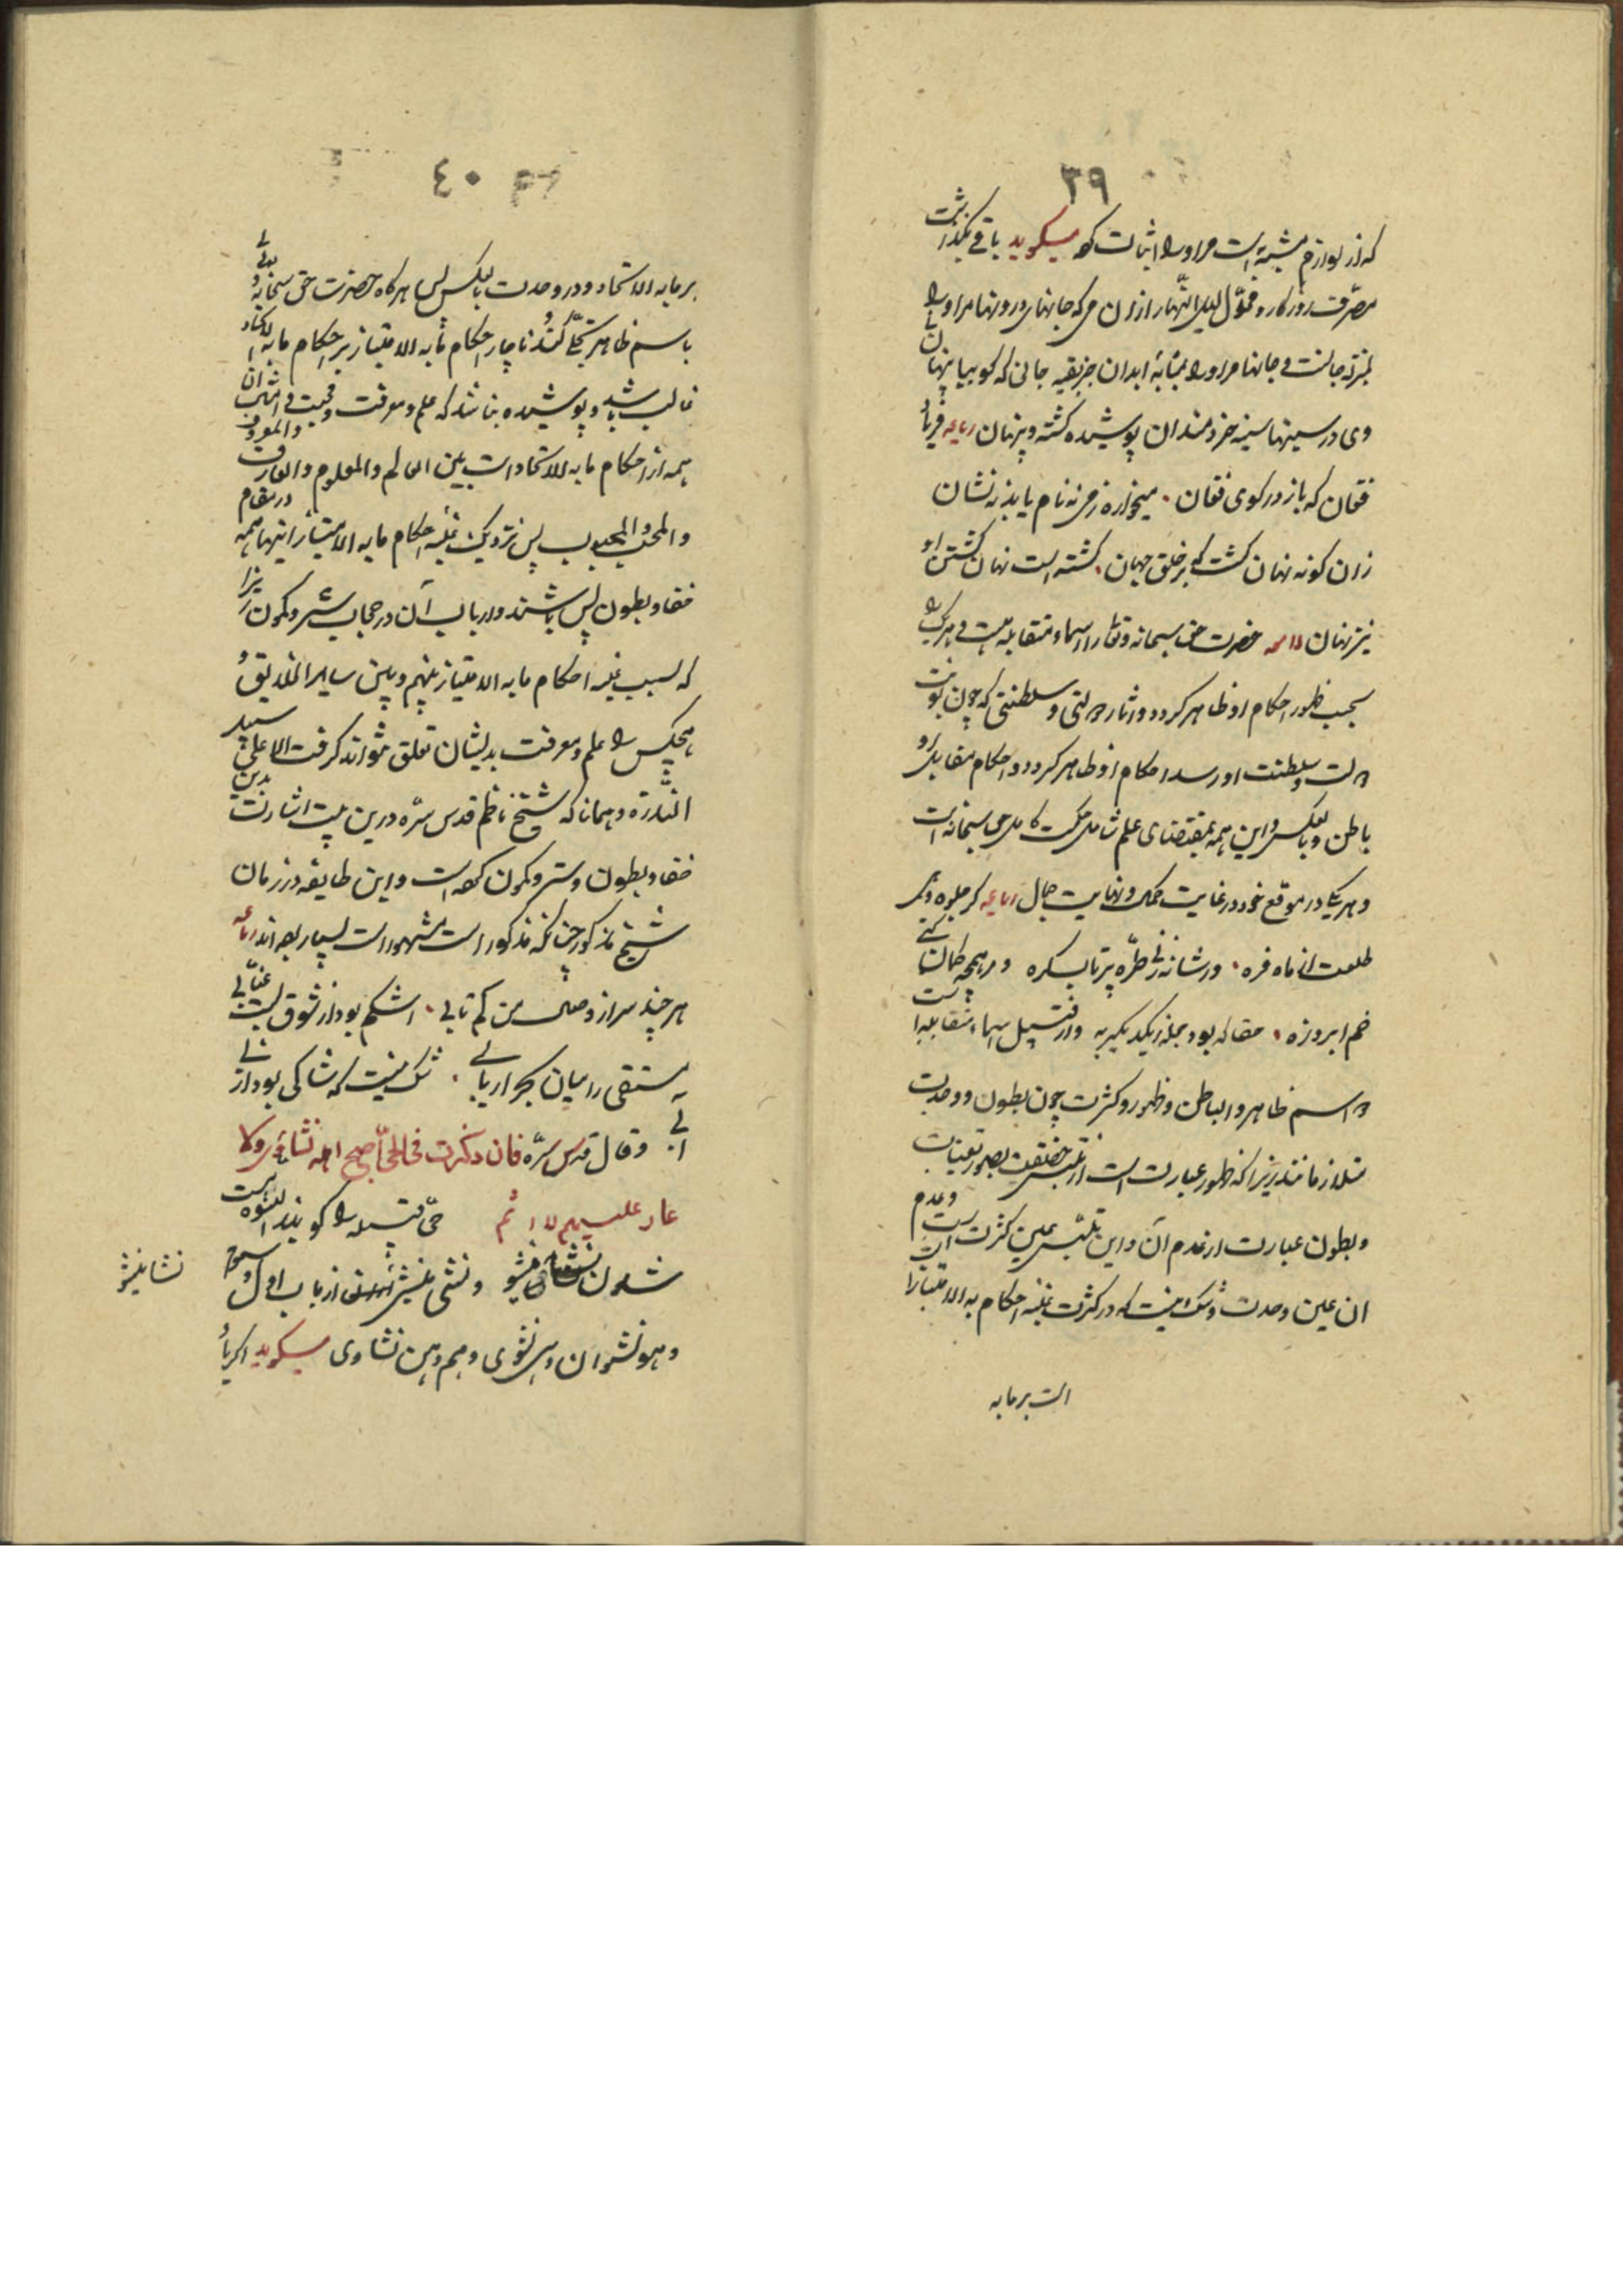 ٣٩
که از لوازم مشیمه است مر او را اثبات کرد میگوید باقی نگذاشت
مصرّف روزکار و محوّل اللیل و النّهار ازان می که جانهای درونها مر او را
بمنزله جانست و جانها مر او را بمثابهٔ ابدان جز بقیه جانی که گوییا پنهان
وی در سینهای خردمندان پوشیده کشته و پنهان رباعیه فریاد
فغان که باز در کوی فغان میخواره ز می نه نام یابد نه نشان
زان کونه نهان کشت که بر خلق جهان کشته است نهان کشتن او
نیز نهان لامعه حضرت حق سبحانه و تعالی را اسماء متقابله هست و هر یک
بحسب ظهور احکام او ظاهر کردد و اثار دولتی و سلطنتی که چون نوبت
دولت و سلطنت او رسد احکام او ظاهر کردد و احکام مقابل او
باطن و بالعکس و این همه بمقتضای علم شامل و حکمت کامل حق سبحانه است
و هر یکی در موقع خود در غایت کمال و نهایت جمال رباعیه
طلعت از ماه فره ور شانه زنی طرّه پرتاب کره
خم ابرو زه بود جمله ز یکدیگر به و از قبیل اسماء متقابله است
دو اسم ظاهر و الباطن و ظهور و کثرت چون بطون و وحدت
متلازمانند زیرا که ظهور عبارت است از تلبّس حقیقت بصور تعینات
و بطون عبارت از عدم آن و این تلبّس عین کثرت است و عدم
ان عین وحدت و شک نیست که در کثرت غلبه احکام ما به الامتیاز را
است بر ما به
٤٠
بر ما به الاتحاد و در وحدت بالعکس پس هر کاه حضرت حق سبحانه و تعالی
باسم ظاهر تجلّی کند ناچار احکام ما به الامتیاز بر احکام ما به الاتحاد
غالب باشد و پوشیده نباشد که علم و معرفت و محبت و امثال ان
همه از احکام ما به الاتحاد است بین العالم و المعلوم و العارف و المعروف
و المحب و المحبوب پس نزدیک غلبه احکام ما به الامتیاز اینها همه در مقام
خفا و بطون باشند و ارباب آن در حجاب ستر و کمون زیرا
که بسبب غلبه احکام ما به الامتیاز بینهم و بین سایر الخلایق
هیچکس را علم و معرفت بدیشان تعلق نتواند گرفت الا علی سبیل
الندرة و همانا که شیخ ناظم قدس سرّه درین بیت اشارت بدین
خفا و بطون و ستر و کمون کرده است و این طایفه در زمان
شیخ مذکور چنانکه مذکور است و مشهور است بسیار بوده اند رباعیه
هر چند سر از وصل من کم تابی اشکم بود از شوق لبت عنّابی
مستسقی را میان بحر ار یابی شک نیست که شاکی بود از بی
ابی و قال قدس سرّه فان ذکرت فی الحیّ اصبح اهله نشاوی و لا
عار علیهم و لا اثم حیّ قبیله را گویند النشوه مست
شدن نشا ینشو و نشی ینشی از باب اول
و هو نشوان و هی نشوی و هم و هن نشاوی میگوید اگر یاد
نشا ینشو